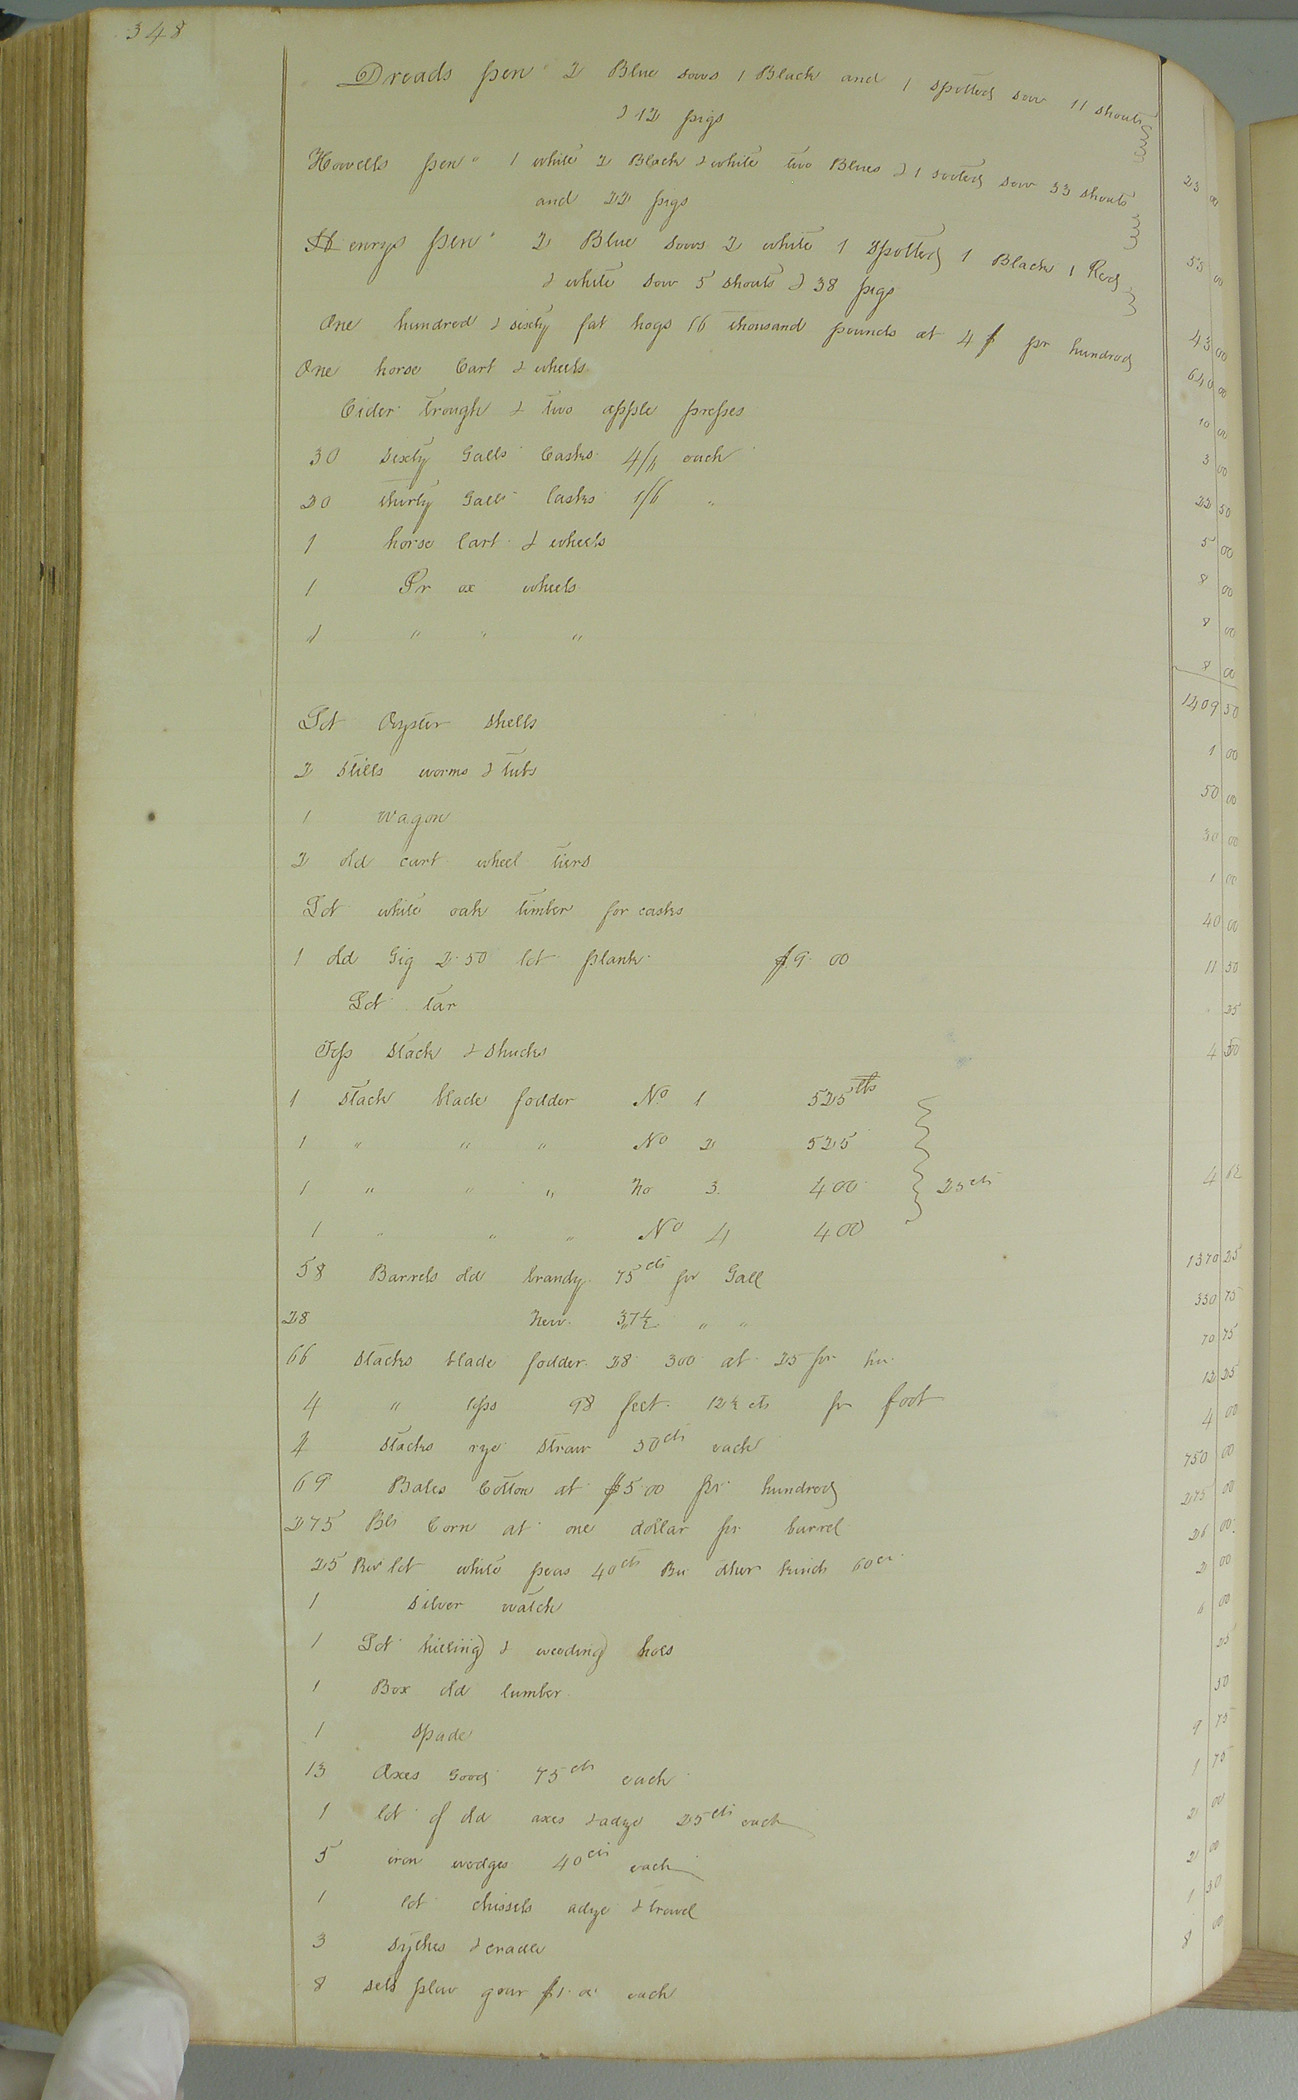 348
Dreads pen " 2 Blue sows 1 Black and 1 spotted sow 11 shouts
& 12 pigs 23 00
Howells pen " 1 white 2 Black & white two Blues & 1 spoted sow 33 shouts
and 22 pigs 55 00
Henrys pen " 2 Blue sows 2 white 1 Spotted 1 Black 1 Red
& white sow 5 shouts & 38 pigs 43 00
One hundred & sixty fat hogs 16 thousand pounds at 4 $ pr hundred 640 00
One horse Cart & wheels 10 00
Cider trough & two apple presses 3 00
30 sixty Galls Casks 4/6 each 22 50
20 thirty Galls Casks 1/6 " 5 00
1 horse Cart & wheels 8 00
1 Pr ox wheels 8 00
1 " " " 8 00
1409 50
Lot Oyster shells 1 00
2 stills worms & tubs 50 00
1 wagon 30 00
2 old cart wheel tiers 1 00
Lot white oak timber for casks 40 00
1 old Gig 2.50 lot plank $9.00 11 50
Lot tar 25
Tops stack & shucks 4 50
1 stack blade fodder No 1 525 lbs
1 " " " No 2 525
1 " " " No 3 400 25 cts 4 62
1 " " " No 4 400
58 Barrels old brandy 75 cts pr Gall 1370 25
28 New 37½ " " 330 75
66 stacks blade fodder 28 300 at 25 pr hu 70 75
4 " tops 98 feet 12½ cts pr foot 12 25
4 stacks rye straw 50 cts each 4 00
69 Bales Cotton at $5.00 pr hundred 750 00
275 Bls Corn at one dollar pr barrel 275 00
25 Bu lot white peas 40 cts Bu other kinds 60 cts 26 00
1 silver watch 2 00
1 Lot hilling & weeding hoes 6 00
1 Box old lumber 25
1 spade 50
13 Axes Good 75 cts each 9 75
1 lot of old axes & adze 25 cts each 1 75
5 iron wedges 40 cts each 2 00
1 lot chissels adze & trowel 2 00
3 sythes & cradle 1 50
8 sets plow gear $1.00 each 8 00